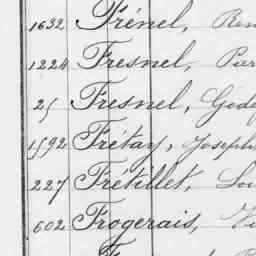 1632 Frénel, Ren
1224 Fresnel, Par
25 Fresnel, Gode
1592 Frétay, Joseph
227 Frétillet, Lou
602 Frogerais, Vi